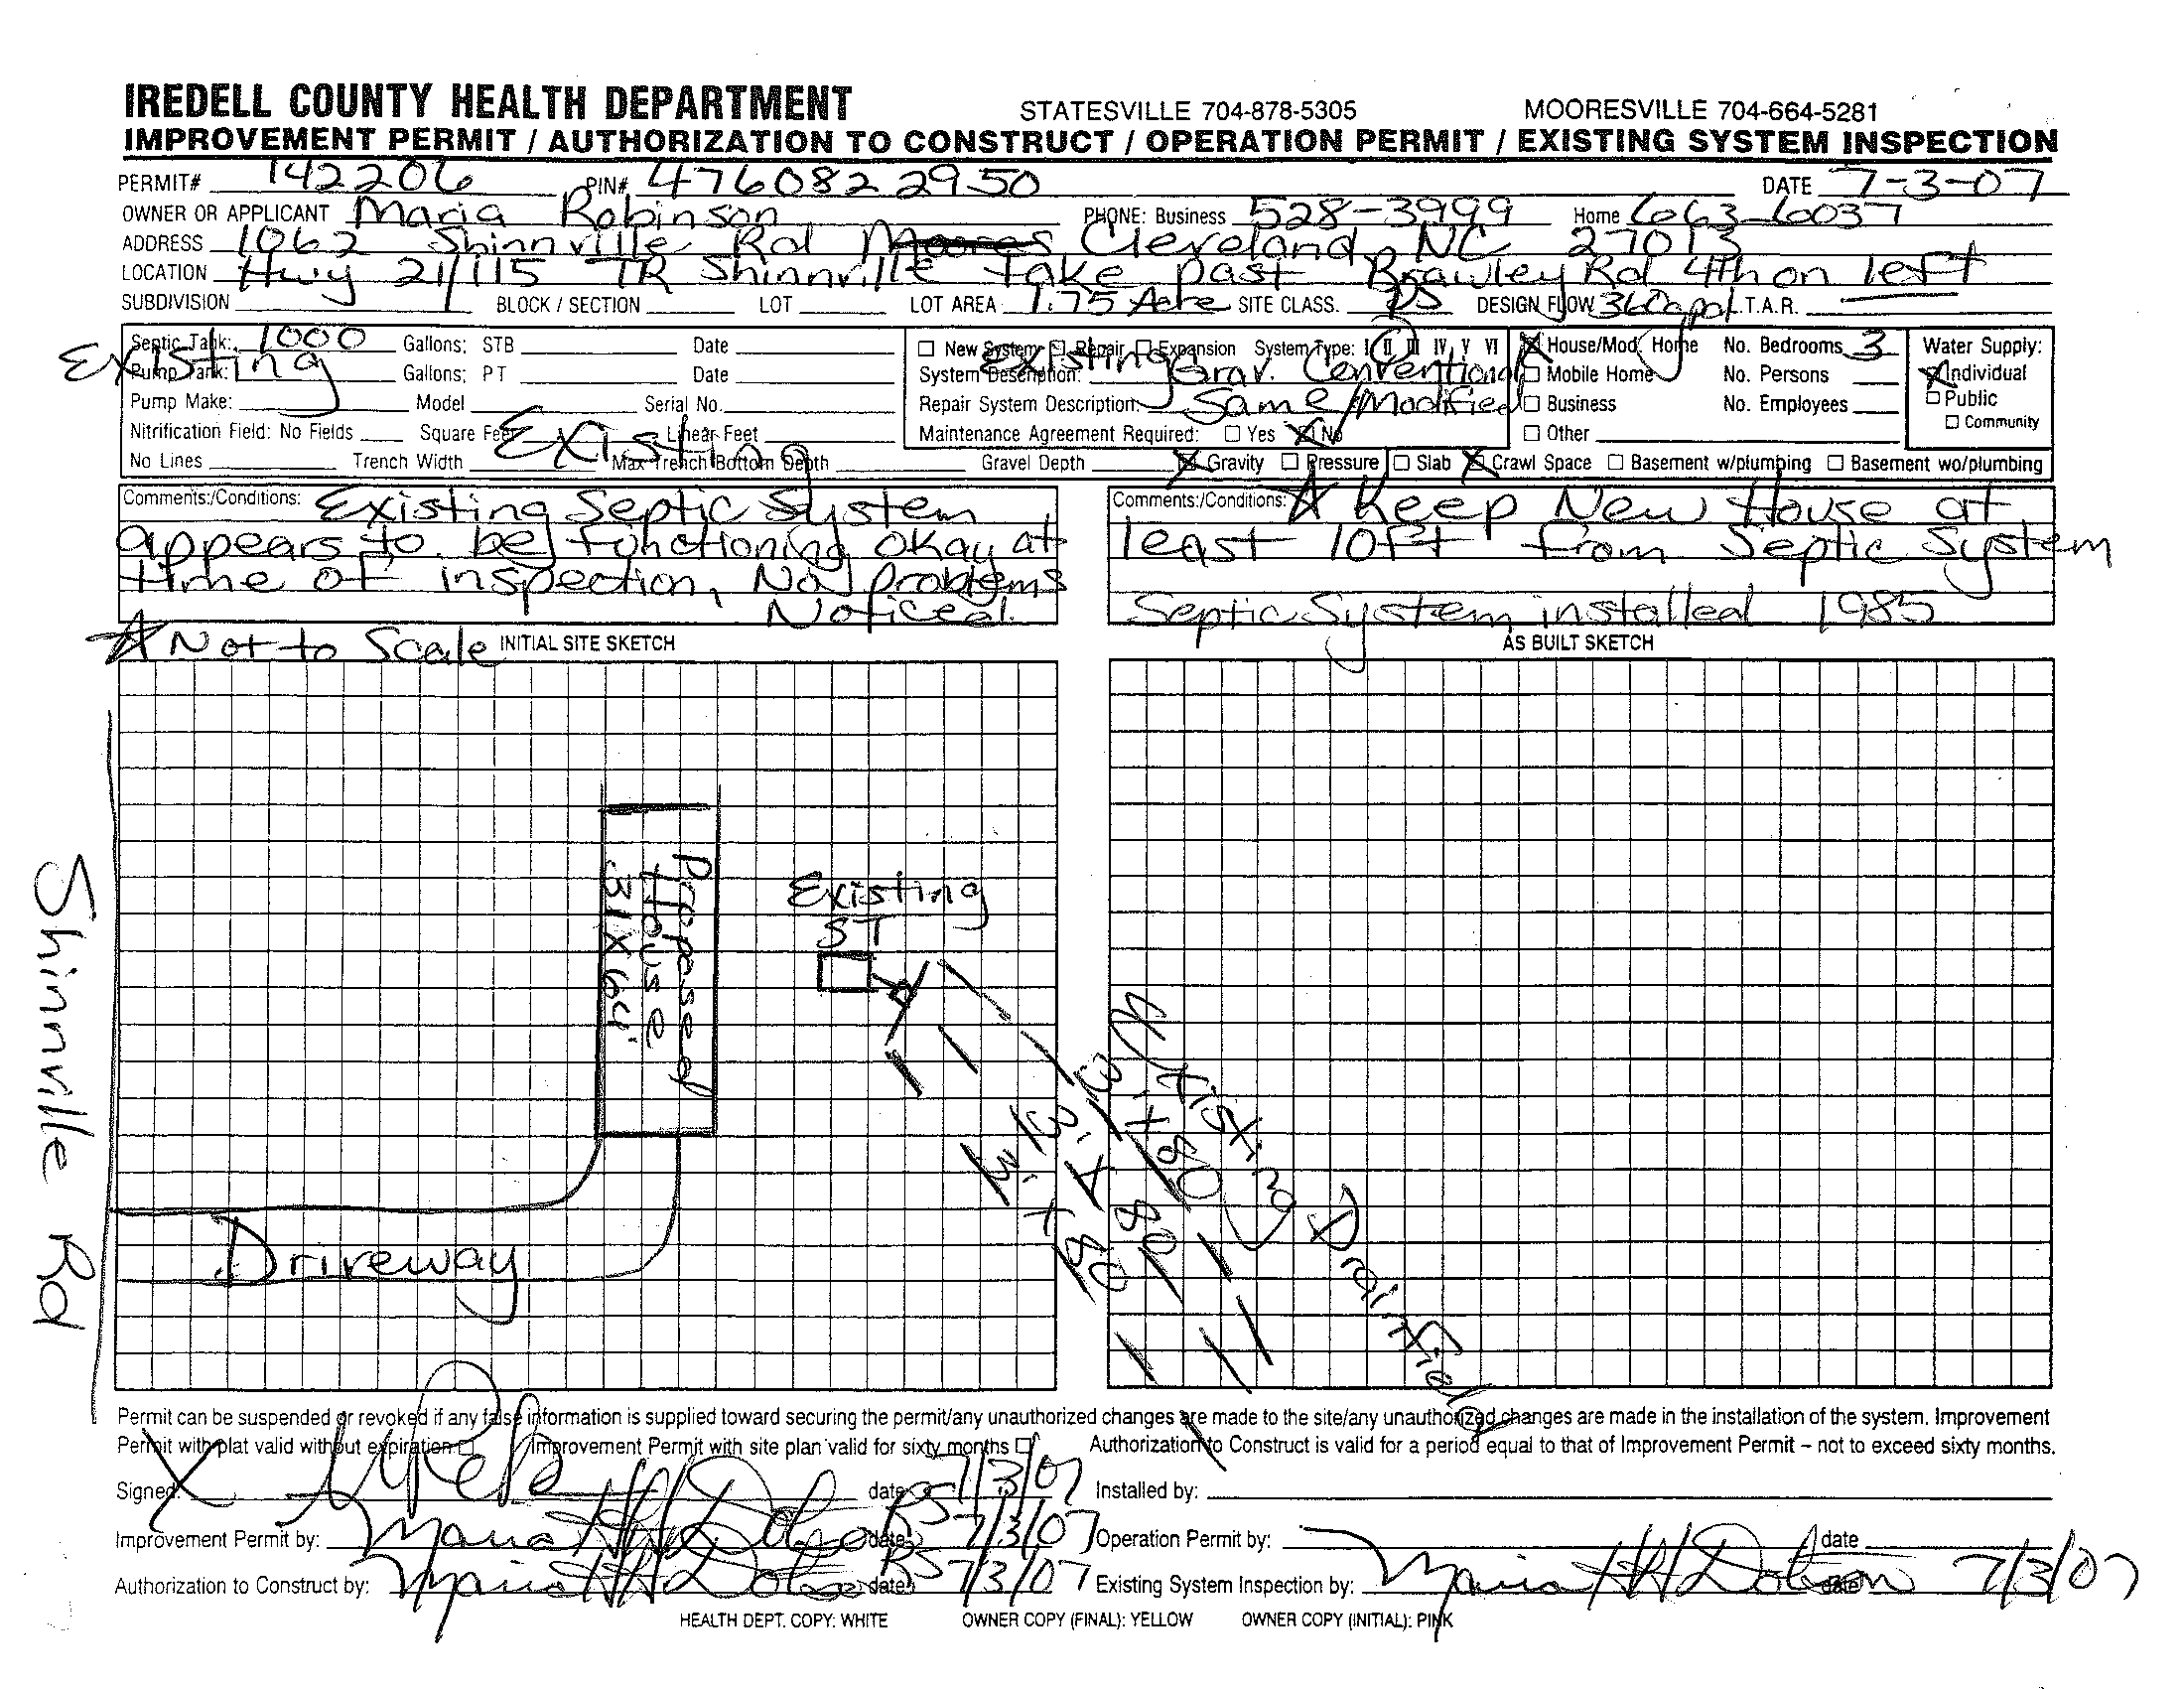 IREDELL COUNTY HEALTH DEPARTMENT STATESVILLE 704-878-5305 MOORESVILLE 704-664-5281
IMPROVEMENT PERMIT / AUTHORIZATION TO CONSTRUCT / OPERATION PERMIT / EXISTING SYSTEM INSPECTION
PERMIT# 142206 PIN# 4760822950 DATE 7-3-07
OWNER OR APPLICANT Maria Robinson PHONE: Business 528-3999 Home 663-6037
ADDRESS 1062 Shinnville Rd Cleveland, NC 27013
LOCATION Hwy 21/115 TR Shinnville take past Brawley Rd 4th on left
SUBDIVISION BLOCK / SECTION LOT LOT AREA 1.75 Acre SITE CLASS. PS DESIGN FLOW 360gpd L.T.A.R.
Septic Tank: 1000 Gallons: STB Date
Existing
Pump Tank: Gallons: PT Date
Pump Make: Model Serial No.
Nitrification Field: No Fields Square Feet Existing Linear Feet
No Lines Trench Width Max Trench Bottom Depth Gravel Depth Gravity Pressure Slab Crawl Space Basement w/plumbing Basement wo/plumbing
New System Repair Expansion System Type: I II III IV V VI
System Description: Existing Grav. Conventional
Repair System Description: Same/Modified
Maintenance Agreement Required: Yes No
House/Mod Home No. Bedrooms 3
Mobile Home No. Persons
Business No. Employees
Other
Water Supply:
Individual
Public
Community
Comments:/Conditions: Existing Septic System
appears to be functioning okay at
time of inspection, No problems
Noticed.
Comments:/Conditions: Keep New House at
least 10ft from Septic System
Septic System installed 1985
Not to Scale INITIAL SITE SKETCH
AS BUILT SKETCH
Shinnville Rd
Proposed
House
31x64'
Existing
ST
3'x80
3'x80
3'x80
Existing Drainfield
Driveway
Permit can be suspended or revoked if any false information is supplied toward securing the permit/any unauthorized changes are made to the site/any unauthorized changes are made in the installation of the system. Improvement
Permit with plat valid without expiration Improvement Permit with site plan valid for sixty months Authorization to Construct is valid for a period equal to that of Improvement Permit – not to exceed sixty months.
Signed: X date 7/3/07 Installed by:
Improvement Permit by: Maria H Dobson RS date 7/3/07 Operation Permit by: date
Authorization to Construct by: Maria H Dobson RS date 7/3/07 Existing System Inspection by: Maria H Dobson date 7/3/07
HEALTH DEPT. COPY: WHITE OWNER COPY (FINAL): YELLOW OWNER COPY (INITIAL): PINK